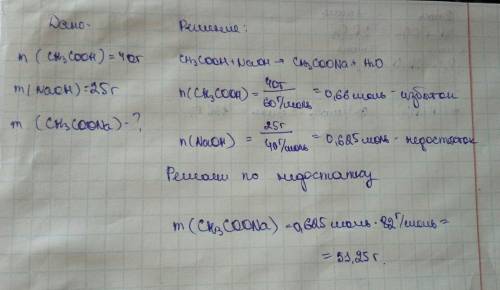 Дано:
m (CH₃COOH) = 40г
m (NaOH) = 25г
m (CH₃COONa) - ?
Решение:
CH₃COOH + NaOH → CH₃COONa + H₂O
n(CH₃COOH) = 40г / 60г/моль = 0,66 моль - избыток
n(NaOH) = 25г / 40г/моль = 0,625 моль - недостаток
Решаем по недостатку
m (CH₃COONa) = 0,625 моль · 82г/моль =
= 51,25 г.